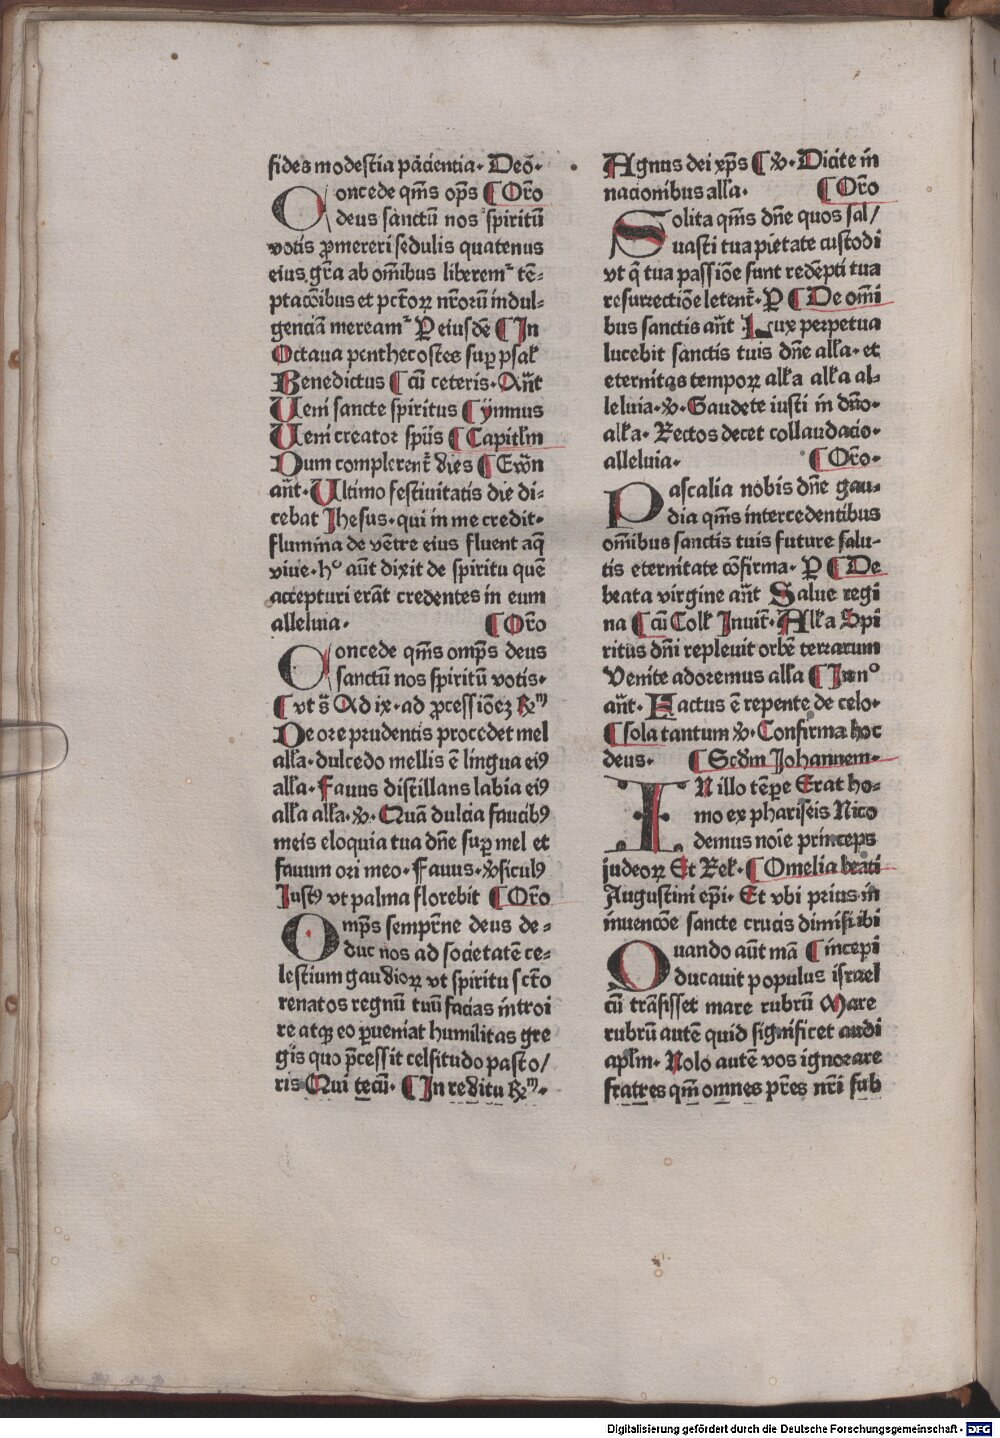 fides modestia paciencia. Deo.
Concede qm̄s op̄s ¶ Orō
deus sanctū nos spiritū
votis ꝓmereri sedulis quatenus
eius gr̄a ab om̄ibus liberem᷑ tē-
ptacōibus et pctōꝝ nr̄orū indul-
genciā meream᷑ ꝑ eiusdē ¶ In
Octaua penthecostes suꝑ psal̄
Benedictus ¶ cū ceteris. Ant̄
Veni sancte spiritus ¶ Ymnus
Veni creator spūs ¶ Capitlm̄
Dum complerent᷑ dies ¶ Ewn̄
ant̄. Ultimo festiuitatis die di-
cebat Jhesus. qui in me credit.
flumina de vētre eius fluent aq̄
viue. h° aūt dixit de spiritu quē
accepturi erāt credentes in eum
alleluia. ¶ Orō
Concede qm̄s omp̄s deus
sanctū nos spiritū votis.
¶ vt s̄ Ad ix. ad ꝓcessiōeꝫ ℞ᵐ
De ore prudentis procedet mel
all̄a. dulcedo mellis ē lingua eiꝰ
all̄a. Fauus distillans labia eiꝰ
all̄a all̄a. ℣. Quā dulcia faucibꝰ
meis eloquia tua dn̄e suꝑ mel et
fauum ori meo. Fauus. ℣siculꝰ
Justꝰ vt palma florebit ¶ Orō
Omp̄s semprn̄e deus de-
duc nos ad societatē ce-
lestium gaudioꝝ vt spiritu sctō
renatos regnū tuū facias introi
re atqꝫ eo ꝑueniat humilitas gre
gis quo p̄cessit celsitudo pasto/
ris Qui tecū. ¶ In reditu ℞ᵐ.
Agnus dei xp̄s ¶ ℣. Dicite in
nacionibus all̄a. ¶ Orō
Solita qm̄s dn̄e quos sal/
uasti tua pietate custodi
vt q̄ tua passiōe sunt redēpti tua
resurrectiōe letent᷑. ꝑ ¶ De om̄i
bus sanctis ant̄ Lux perpetua
lucebit sanctis tuis dn̄e all̄a. et
eternitas tempoꝝ all̄a all̄a al-
leluia. ℣. Gaudete iusti in dn̄o.
all̄a. Rectos decet collaudacio.
alleluia. ¶ Orō.
Pascalia nobis dn̄e gau-
dia qm̄s intercedentibus
om̄ibus sanctis tuis future salu-
tis eternitate cōfirma. ꝑ ¶ De
beata virgine ant̄ Salue regi
na ¶ cū Coll̄ Inuit᷑. All̄a Spi
ritus dn̄i repleuit orbē terrarum
Venite adoremus all̄a ¶ Inn°
ant̄. Factus ē repente de celo.
¶ sola tantum ℣. Confirma hoc
deus. ¶ Scdm̄ Johannem.
IN illo tēpe Erat ho-
mo ex phariseis Nico
demus noīe princeps
judeoꝝ Et Rel̄. ¶ Omelia beati
Augustini ep̄i. Et vbi prius in
inuencōe sancte crucis dimisi ibi
Quando aūt mā ¶ incepi
ducauit populus israel
cū trāsisset mare rubrū Mare
rubrū autē quid significet audi
aplm̄. Nolo autē vos ignorare
fratres qm̄ omnes pr̄es nr̄i sub
Digitalisierung gefördert durch die Deutsche Forschungsgemeinschaft - DFG